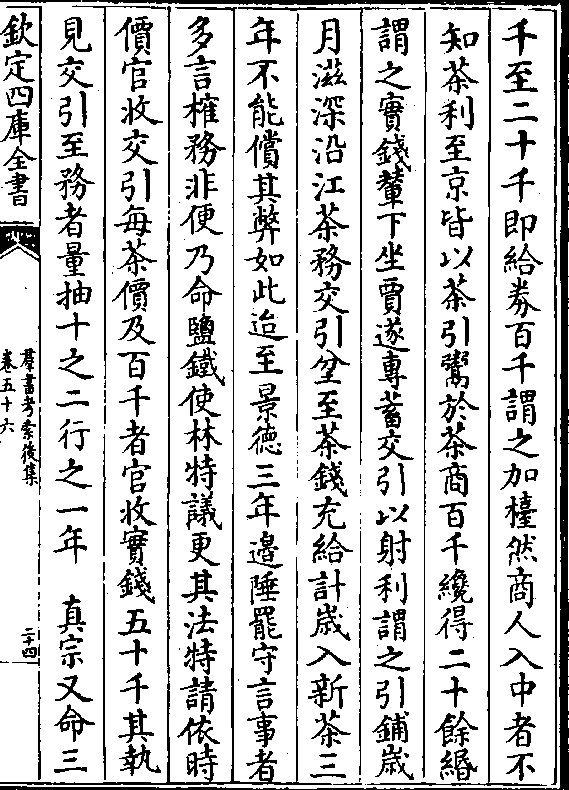 千至二十千即給劵百千謂之加擡然商人入中者不
知茶利至京皆以茶引鬻於茶商百千纔得二十餘緡
謂之實錢輦下坐賈遂專蓄交引以射利謂之引鋪歲
月滋深沿江茶務交引坌至茶錢充給計歲入新茶三
年不能償其弊如此迨至景德三年邉陲罷守言事者
多言榷務非便乃命鹽鐵使林特議更其法特請依時
價官收交引每茶價及百千者官收實錢五十千其執
見交引至務者量抽十之二行之一年　真宗又命三
欽定四庫全書
羣書考索後集
卷五十六
二十四